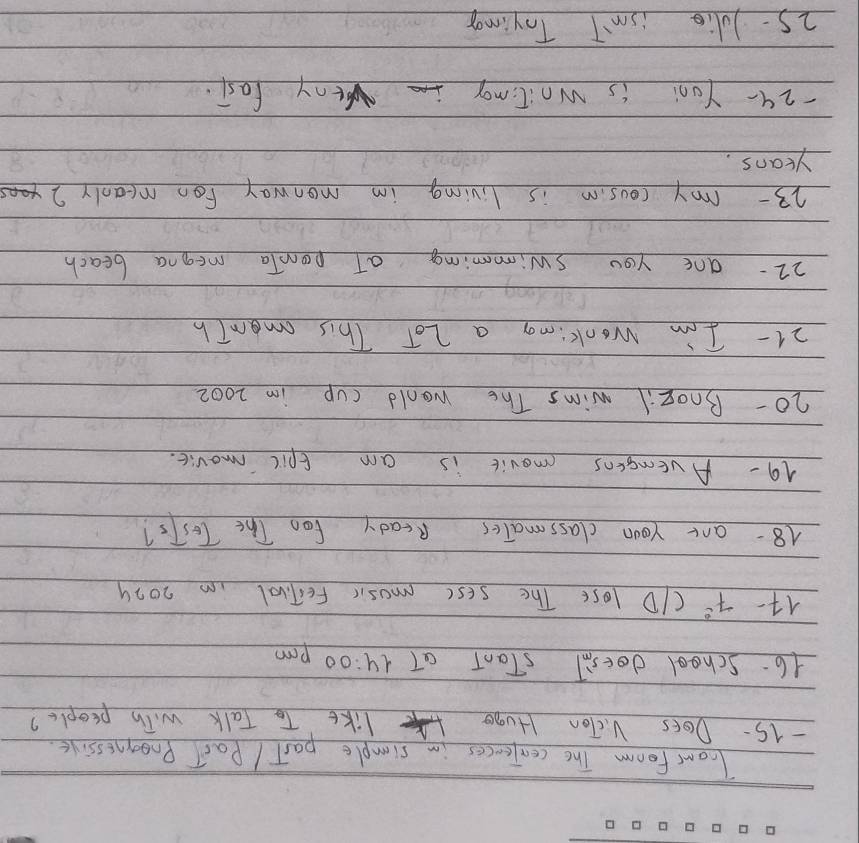 Transform The centences in simple past / Past Progressive.
- 15- Does Victor Hugo like To Talk with people?
16- School doesn't start at 14:00 pm
17- 7º C/D lose The sesc music Festival in 2024
18- are your classmates Ready for The Tests?
19- Avengers movie is an Epic movie.
20- Brazil wins The world cup in 2002
21- I'm working a LoT This month
22- are you swimming at ponta negra beach
23- my cousin is living in norway for nearly 2 years
years.
- 24- Yuri is writing very fast.
25- Julia isn't Trying